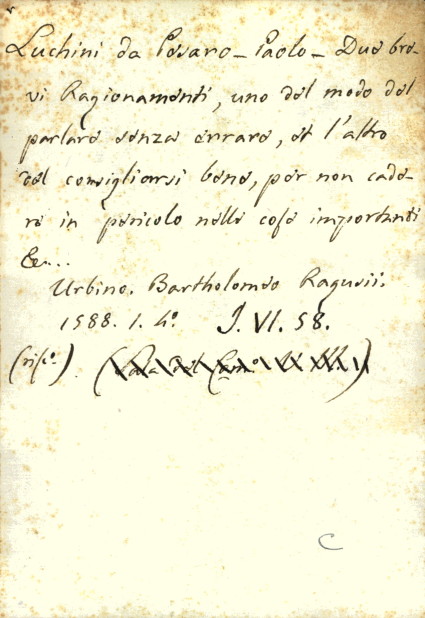 Luchini da Pesaro – Paolo – Due bre-
vi Ragionamenti, uno del modo del
parlare senza errare, et l'altro
del consigliarsi bene, per non cade-
re in pericolo nelle cose importanti
&c...
Urbino. Bartholomeo Ragusii.
1588. 1. 4.° J. VI. 58.
C